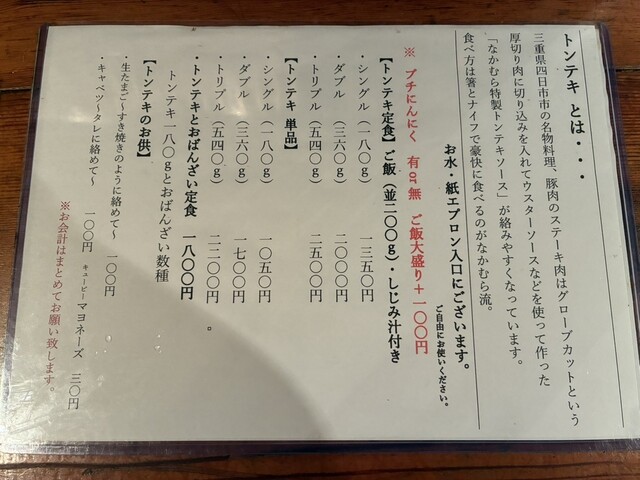 トンテキ とは・・・
三重県四日市市の名物料理、豚肉のステーキ肉はグローブカットという
厚切り肉に切り込みを入れてウスターソースなどを使って作った
「なかむら特製トンテキソース」が絡みやすくなっています。
食べ方は箸とナイフで豪快に食べるのがなかむら流。
お水・紙エプロン入口にございます。
ご自由にお使いください。
※ プチにんにく 有 or 無 ご飯大盛り+一〇〇円
【トンテキ定食】ご飯(並二〇〇g)・しじみ汁付き
・シングル(一八〇g) 一三五〇円
・ダブル(三六〇g) 二〇〇〇円
・トリプル(五四〇g) 二五〇〇円
【トンテキ 単品】
・シングル(一八〇g) 一〇五〇円
・ダブル(三六〇g) 一七〇〇円
・トリプル(五四〇g) 二二〇〇円 。
・トンテキとおばんざい定食 一八〇〇円
トンテキ一八〇gとおばんざい数種
【トンテキのお供】
・生たまご～すき焼きのように絡めて～ 一〇〇円
・キャベツ～タレに絡めて～ 一〇〇円 キューピーマヨネーズ 三〇円
※お会計はまとめてお願い致します。